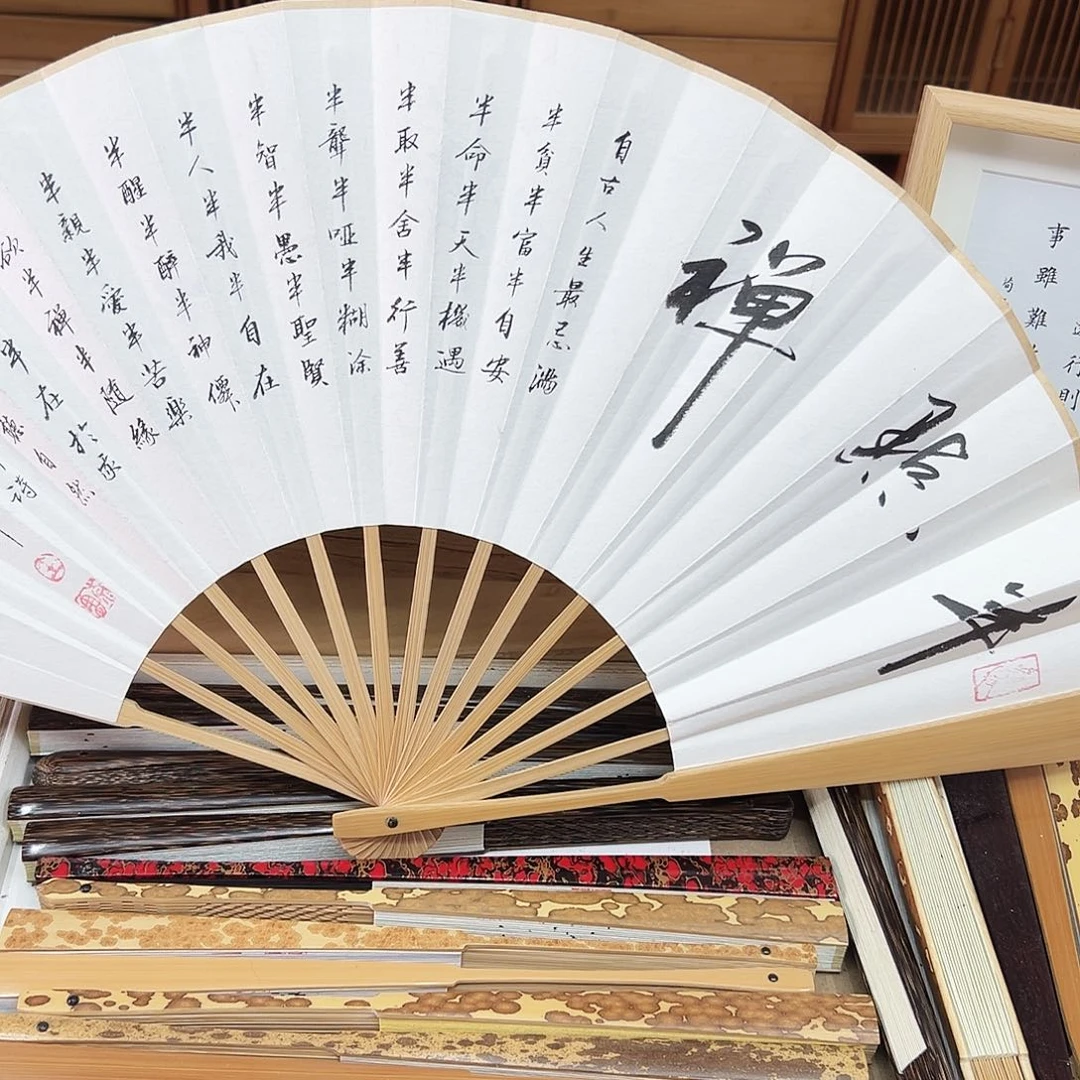 半點禪
自古人生最忌滿
半貧半富半自安
半命半天半機遇
半取半舍半行善
半聾半啞半糊涂
半智半愚半聖賢
半人半我半自在
半醒半醉半神僊
半親半愛半苦樂
欲半禪半随緣
半在於我
聽自然
詩
行則
事雖難